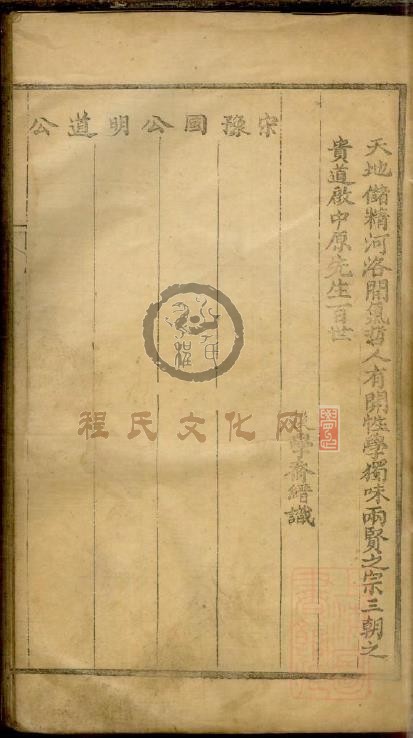 天地儲精河洛開氣哲人有開性學獨味兩賢之宗三朝之
貴道啟中原先生百世
學齋縉識
宋豫國公明道公
程氏文化网